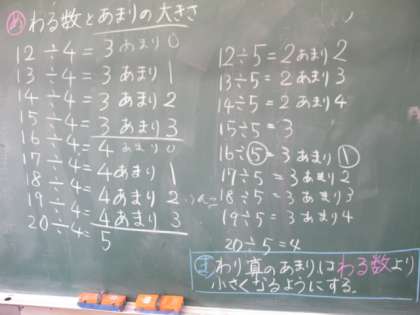 め わる数とあまりの大きさ
12÷4=3あまり0
13÷4=3あまり1
14÷4=3あまり2
15÷4=3あまり3
16÷4=4あまり0
17÷4=4あまり1
18÷4=4あまり2
19÷4=4あまり3
20÷4=5
12÷5=2あまり2
13÷5=2あまり3
14÷5=2あまり4
15÷5=3
16÷5=3あまり1
17÷5=3あまり2
18÷5=3あまり3
19÷5=3あまり4
20÷5=4
ま わり算のあまりはわる数より
小さくなるようにする。